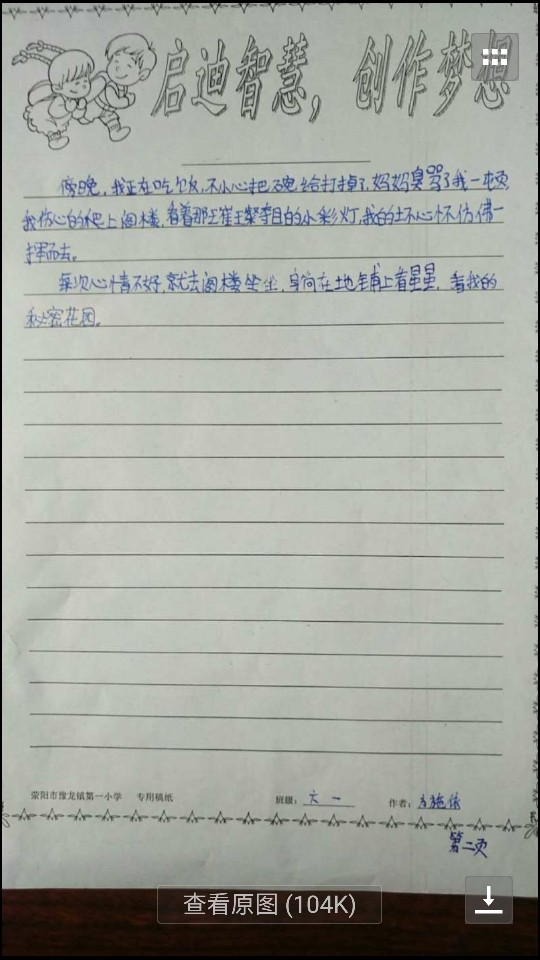 启迪智慧，创作梦想
傍晚，我正在吃饭，不小心把碗给打掉了，妈妈臭骂了我一顿
我伤心的爬上阁楼，看着那王崔王粲夺目的小彩灯，我的坏心怀仿佛一
挥而去。
每次心情不好，就去阁楼坐坐，身向在地铺上看星星，看我的
秘密花园。
荥阳市豫龙镇第一小学 专用稿纸 班级：六一 作者：
第二页
查看原图 (104K)